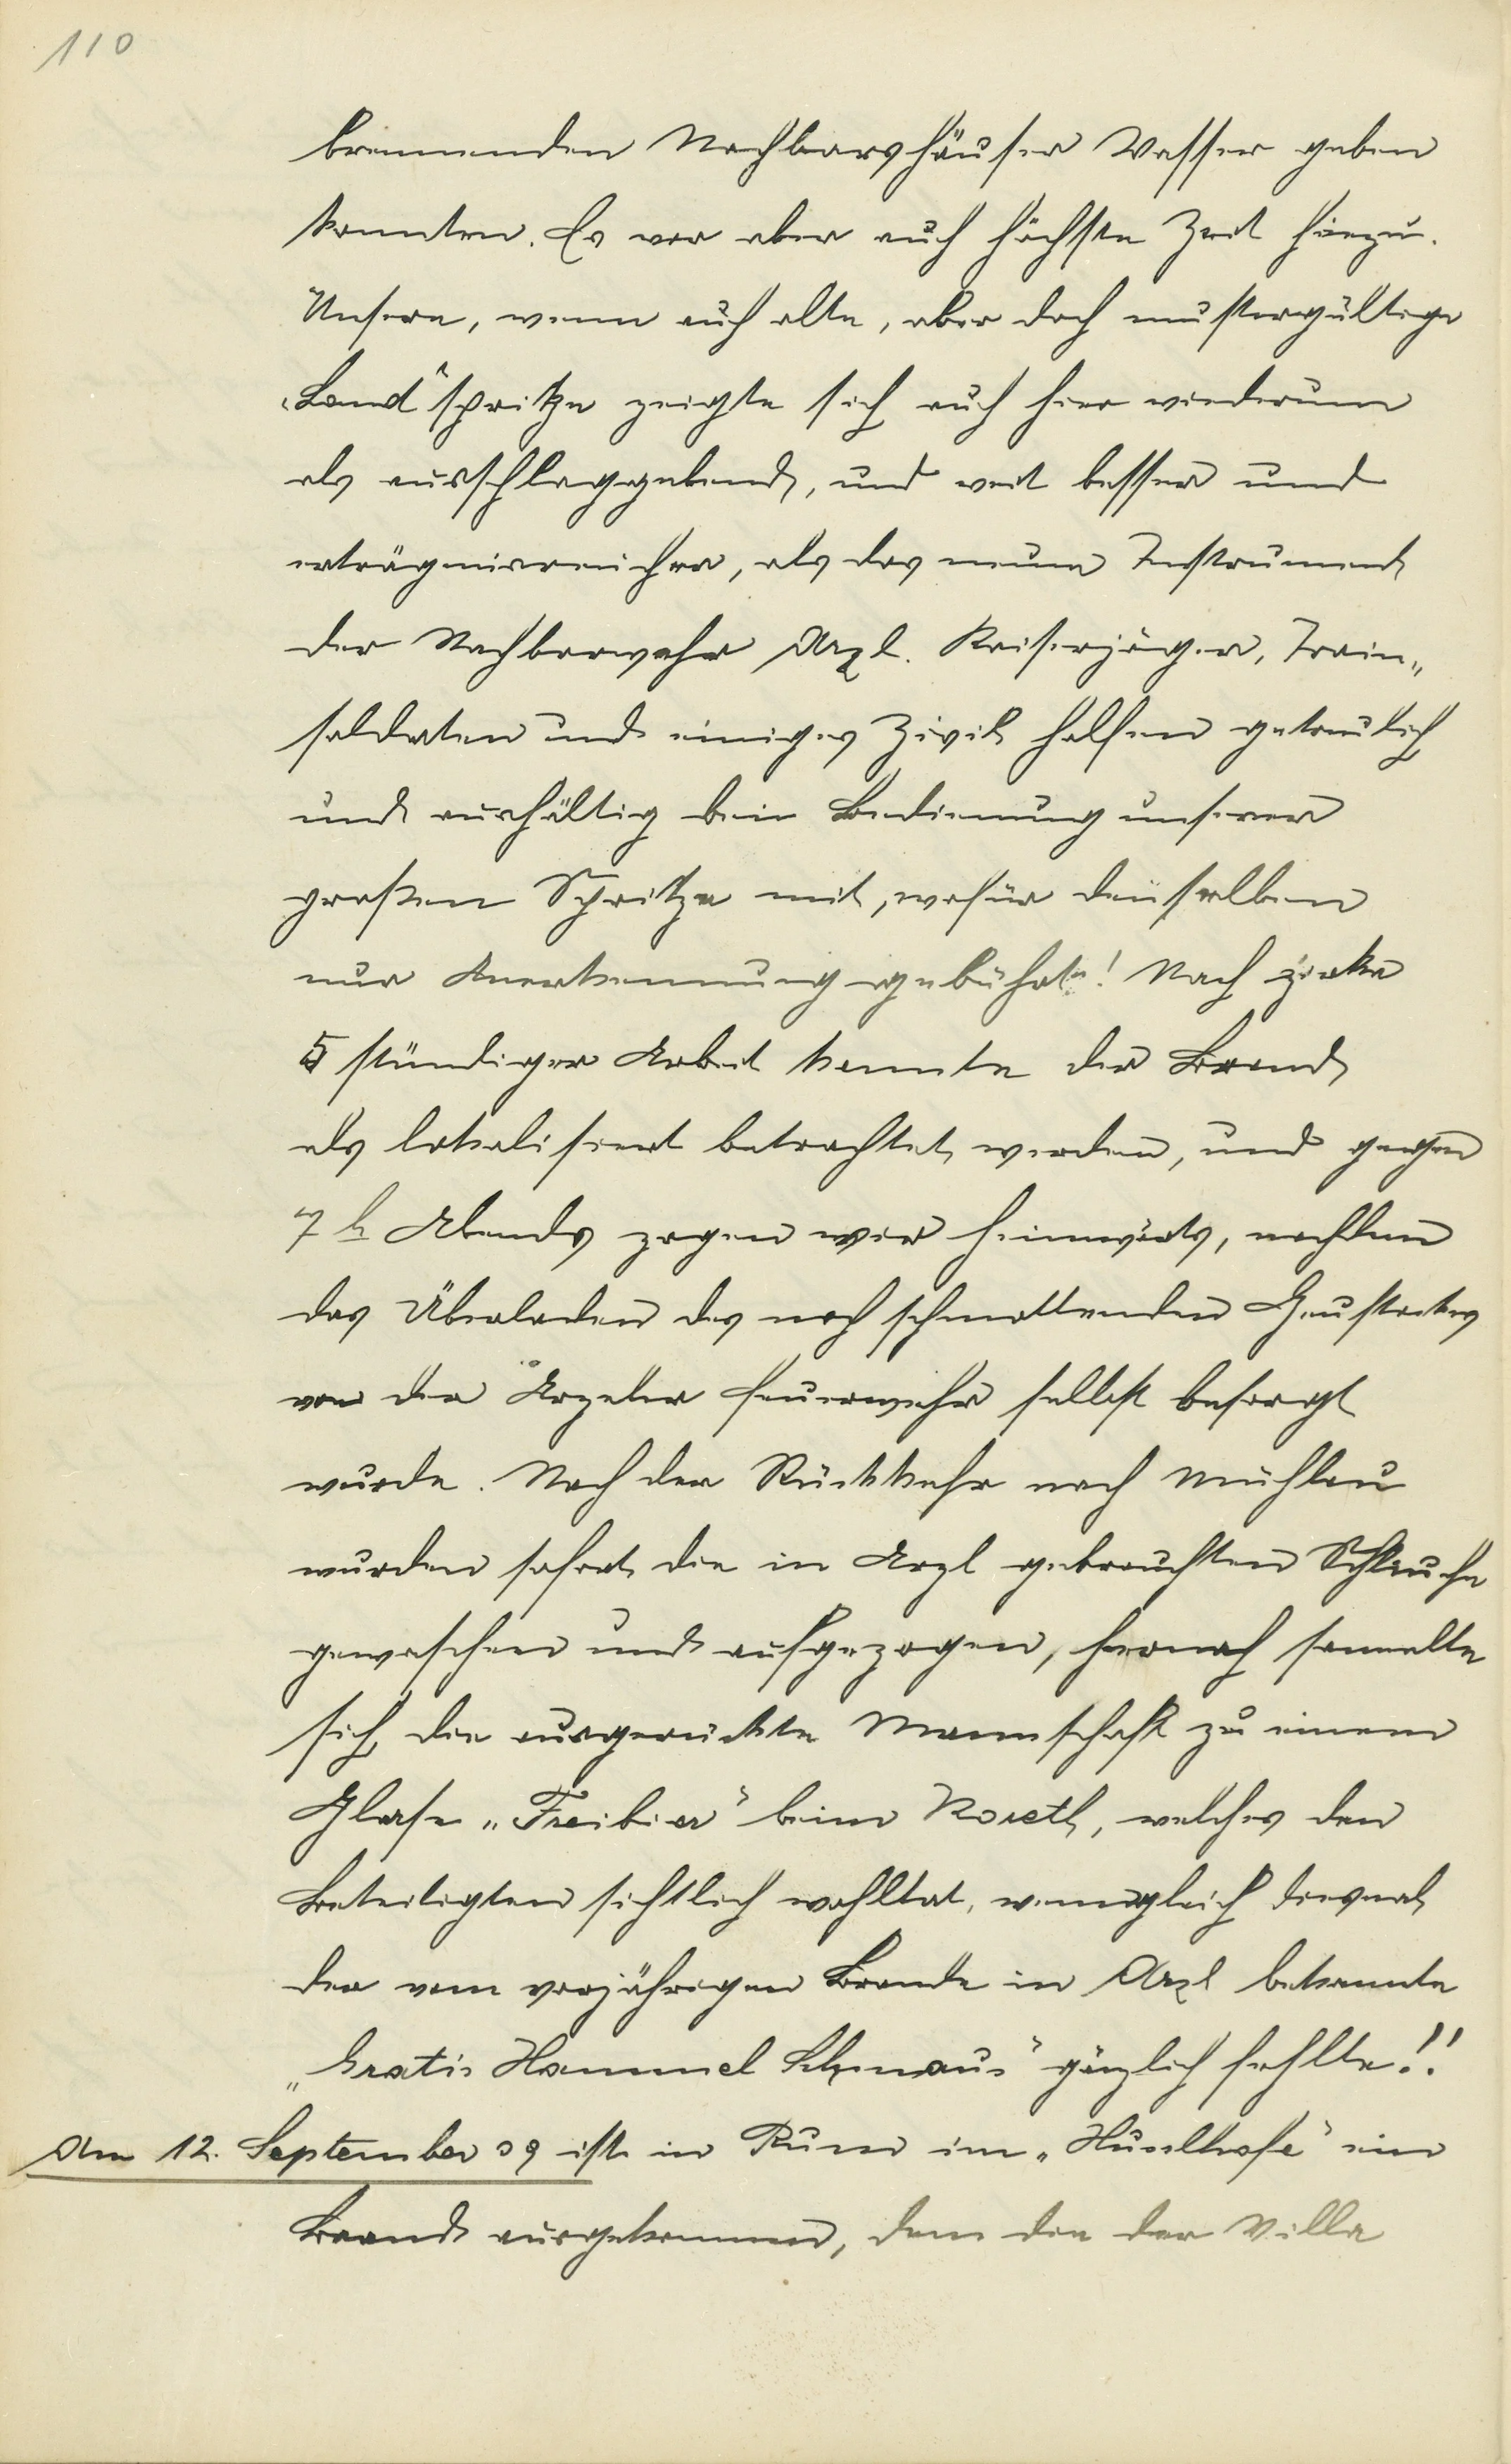 110
brennenden Nachbarshäuser Wasser geben
konnten. Es war aber auch höchste Zeit hiezu.
Unsere, wenn auch alte, aber doch mustergültige
„Land“spritze zeigte sich auch hier wiederum
als ausschlaggebend, und weit besser und
erträgnisreicher, als das neue Instrument
der Nachbarwehr Arzl. Kaiserjäger, Train„
soldaten und einiges Zivil halfen getreulich
und aushältig bei Bedienung unserer
großen Spritze mit, wofür denselben
nur Anerkennung gebührte! Nach zirka
5 stündiger Arbeit konnte der Brand
als lokalisiert betrachtet werden, und gegen
7 h Abends zogen wir heimwärts, nachdem
das Überladen des noch schmollenden Heustockes
von der Arzeler Feuerwehr selbst besorgt
wurde. Nach der Rückkehr nach Mühlau
wurden sofort die in Arzl gebrauchten Schläuche
gewaschen und aufgezogen, hernach sammelte
sich die ausgerückte Mannschaft zu einem
Glase „Freibier“ beim Koreth, welches den
Beteiligten sichtlich wohltat, wenngleich diesmal
der vom vorjährigen Brande in Arzl bekannte
„Gratis Hammel Schmaus“ gänzlich fehlte!!
Am 12. September 09 ist in Rum im ein
Brand ausgekommen, dem die der Villa